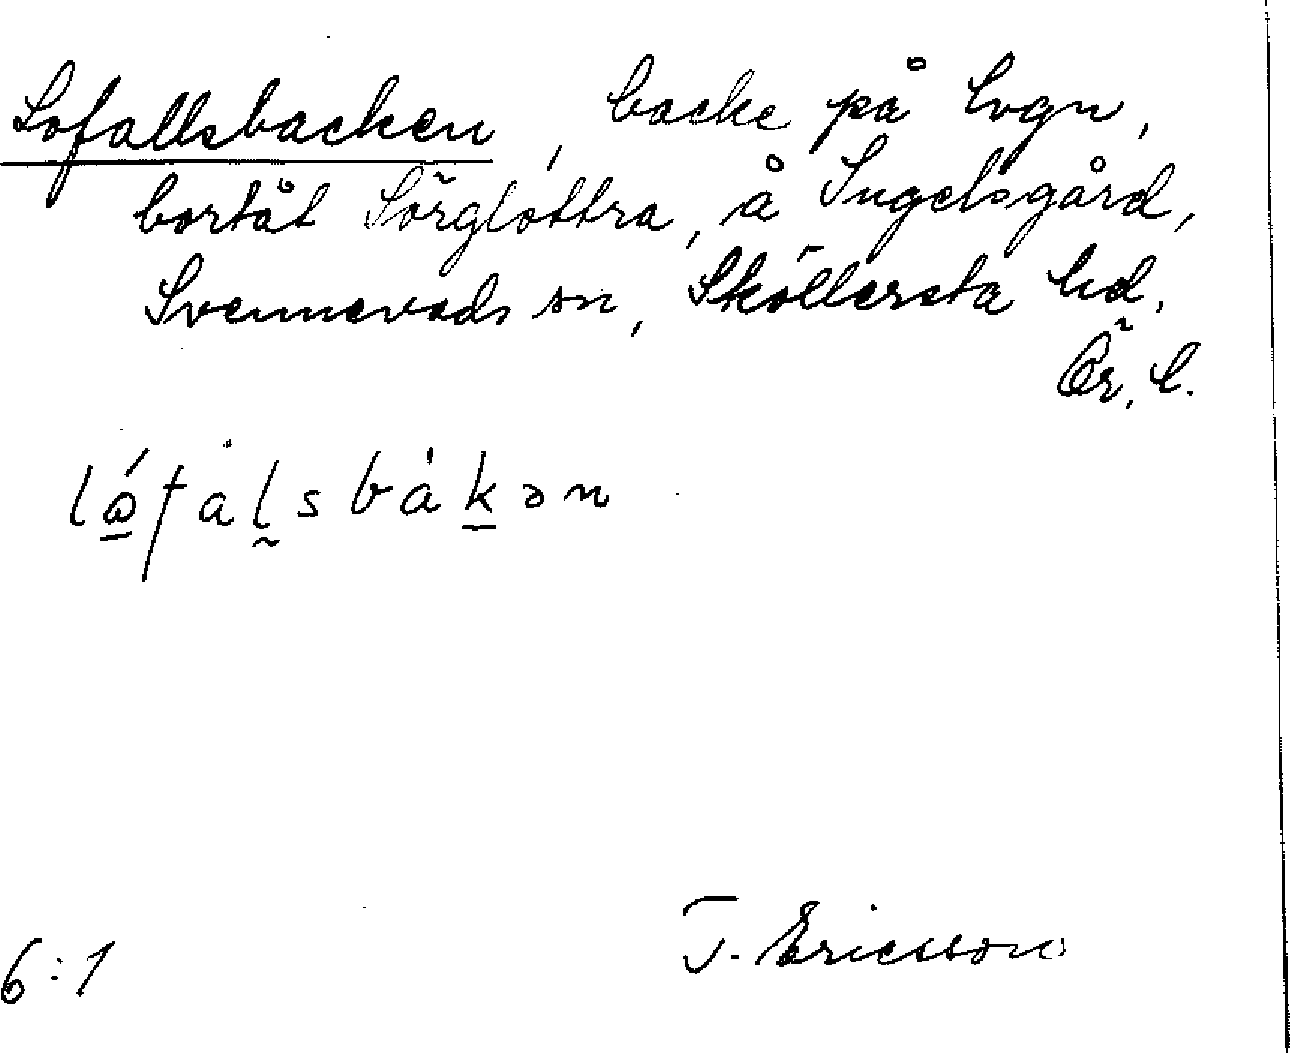 Lofallsbacken, backe på lvgn,
bortåt Sörglottra, å Ingelsgård,
Svennevads sn, Sköllersta hd.
Ör. l.
lófàl̰sbàkən
6:1 T. Ericsson